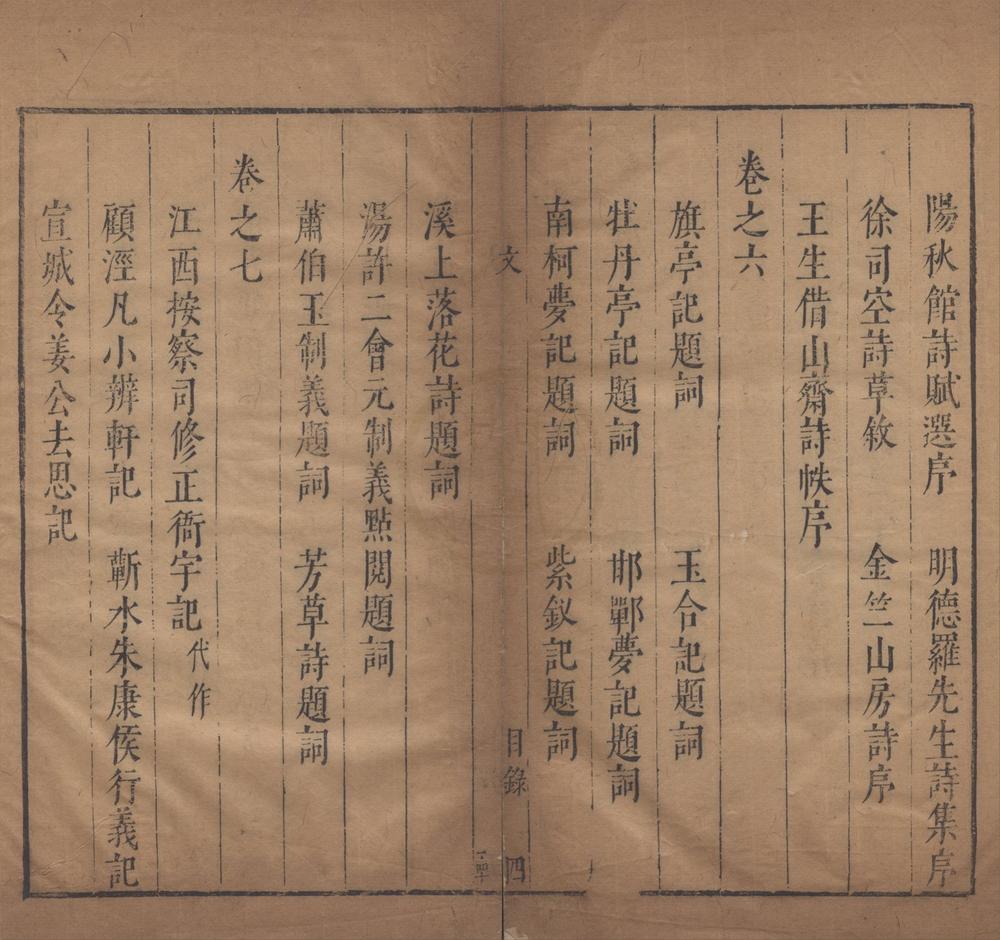 陽秋館詩賦選序　明德羅先生詩集序
徐司空詩草敘　金竺山房詩序
王生借山齋詩帙序
卷之六
旗亭記題詞　玉合記題詞
牡丹亭記題詞　邯鄲夢記題詞
南柯夢記題詞　紫釵記題詞
文　目錄　四
溪上落花詩題詞
湯許二會元制義點閱題詞
蕭伯玉制義題詞　芳草詩題詞
卷之七
江西按察司修正衙宇記代作
顧涇凡小辨軒記　蘄水朱康侯行義記
宣城令姜公去思記